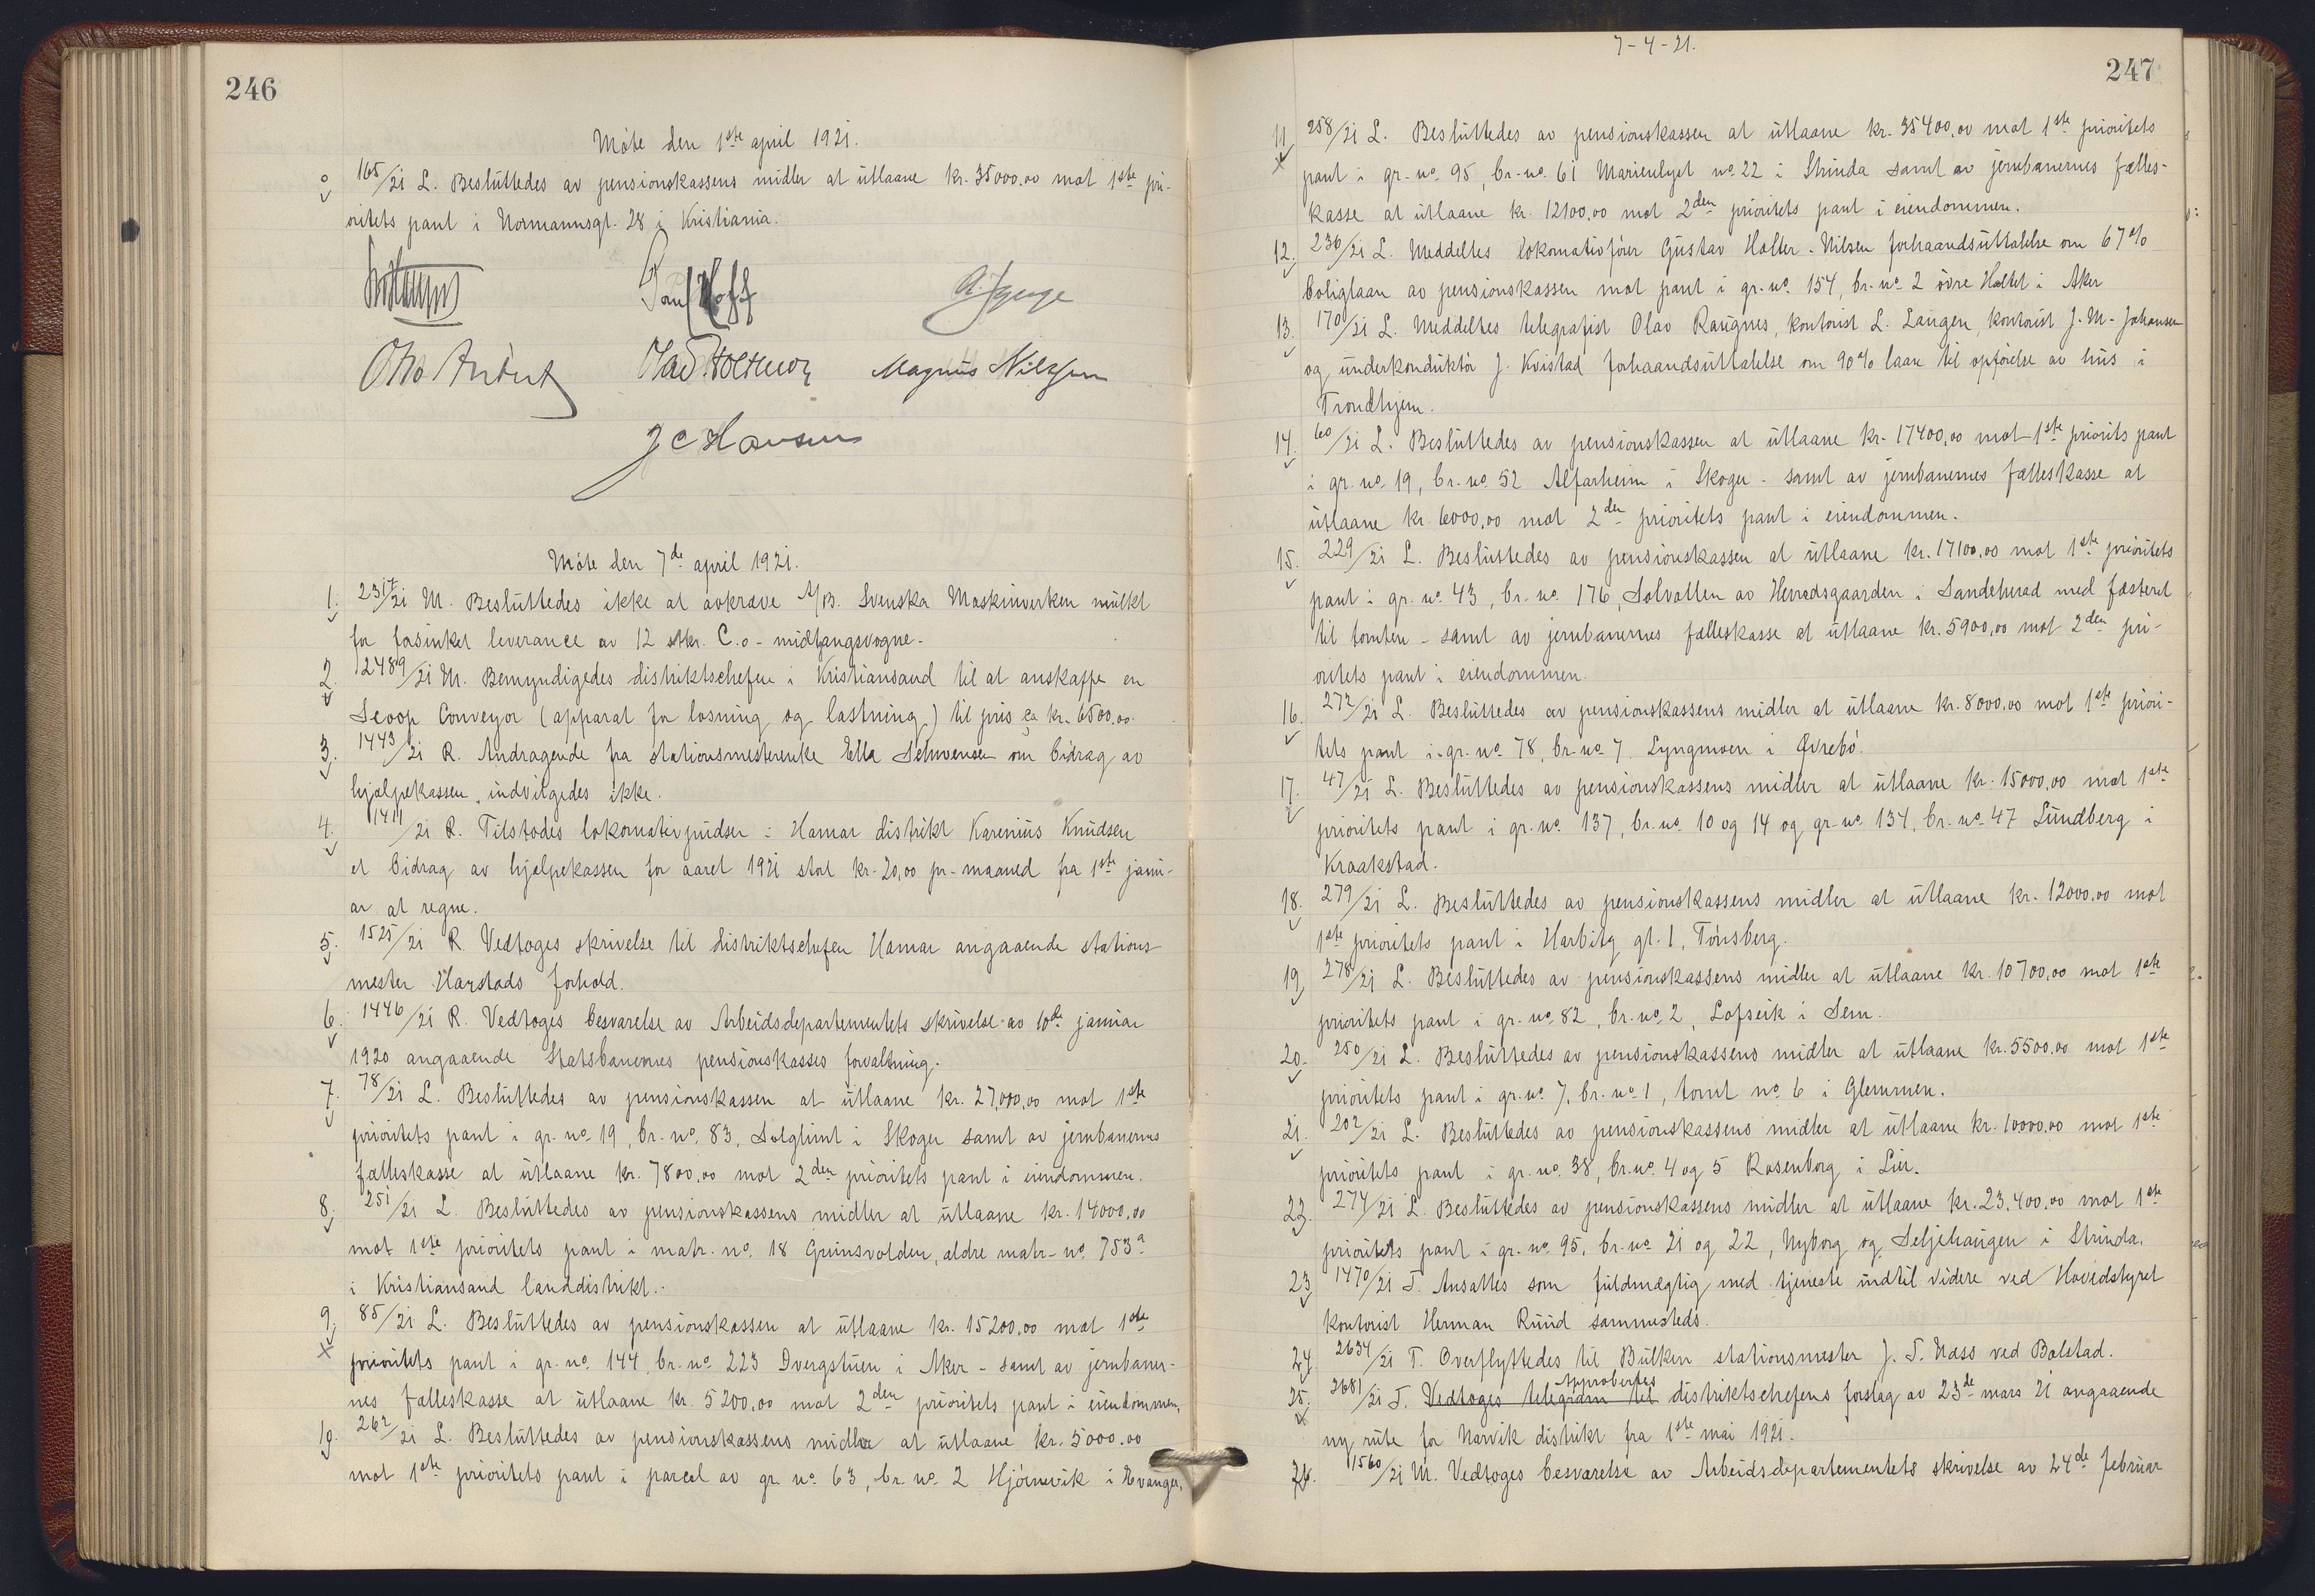 246
Møte den 1ste april 1921.
165/21 L. Besluttedes av pensionskassens midler at utlaane kr. 35000,00 mot 1ste pri-
oritets pant i Normannsgt. 28 i Kristiania.
Otto Aubert
Magnus Nilssen
J C Hansen
Møte den 7de april 1921.
1. 2317/21 M. Besluttedes ikke at avkræve A/B. Svenska Maskinverken mulkt
for forsinket leverance av 12 stkr. C.o - midtgangsvogne.
2. 2489/21 M. Bemyndigedes distriktschefen i Kristiansand til at anskaffe en
Scoop Conveyor (apparat for losning og lastning) til pris ca kr. 6500,00.
3. 1443/21 R. Andragende fra stationsmesterenke Ella Schwensen om bidrag av
hjælpekassen, indvilgedes ikke.
4. 1411/21 R. Tilstodes lokomotivpudser i Hamar distrikt Karenius Knudsen
et bidrag av hjælpekassen for aaret 1921 stort kr. 20,00 pr. maaned fra 1ste janu-
ar at regne.
5. 1525/21 R. Vedtoges skrivelse til distriktschefen Hamar angaaende stations-
mester Harstads forhold.
6. 1446/21 R. Vedtoges besvarelse av Arbeidsdepartementets skrivelse av 10de januar
1920 angaaende Statsbanernes pensionskasses forvaltning.
7. 78/21 L. Besluttedes av pensionskassen at utlaane kr. 27,000,00 mot 1ste
prioritets pant i gr. no. 19, br. no. 83, Solglimt i Skoger samt av jernbanernes
fælleskasse at utlaane kr. 7800,00 mot 2den prioritets pant i eiendommen.
8. 251/21 L. Besluttedes av pensionskassens midler at utlaane kr. 14000,00
mot 1ste prioritets pant i matr. no. 18 Grimsvolden, ældre matr. no. 753a
i Kristiansand landdistrikt.
9. 85/21 L. Besluttedes av pensionskassen at utlaane kr. 15200,00 mot 1ste
prioritets pant i gr. no. 144, br. no. 223 Dvergstuen i Aker - samt av jernbaner-
nes fælleskasse at utlaane kr. 5200,00 mot 2den prioritets pant i eiendommen.
10. 262/21 L. Besluttedes av pensionskassens midler at utlaane kr. 5000.00
mot 1ste prioritets pant i parcel av gr. no. 63, br. no. 2 Hjørnevik i Evanger.
7-4-21.
247
11. 258/21 L. Besluttedes av pensionskassen at utlaane kr. 35400,00 mot 1ste prioritets
pant i gr. no. 95, br. no. 61 Marienlyst no. 22 i Strinda samt av jernbanernes fælles-
kasse at utlaane kr. 12100,00 mot 2den prioritets pant i eiendommen.
12. 236/21 L. Meddeltes lokomotivfører Gustav Holter-Nilsen forhaandsuttalelse om 67%
boliglaan av pensionskassen mot pant i gr. no. 154, br. no. 2 øvre Holtet i Aker
13. 170/21 L. Meddeltes telegrafist Olav Raugnes, kontorist L. Laugen, kontorist J. M. Johansen
og underkonduktør J. Kvistad forhaandsuttalelse om 90% laan til opførelse av hus i
Trondhjem.
14. 60/21 L. Besluttedes av pensionskassen at utlaane kr. 17400,00 mot 1ste priorits pant
i gr. no. 19, br. no. 52 Alfarheim i Skoger - samt av jernbanernes fælleskasse at
utlaane kr. 6000,00 mot 2den prioritets pant i eiendommen.
15. 229/21 L. Besluttedes av pensionskassen at utlaane kr. 17100,00 mot 1ste prioritets
pant i gr. no. 43, br. no. 176, Solvatten av Herradsgaarden i Sandeherad med fæsteret
til tomten - samt av jernbanernes fælleskasse at utlaane kr. 5900,00 mot 2den pri-
oritets pant i eiendommen.
16. 272/21 L. Besluttedes av pensionskassens midler at utlaane kr. 8000,00 mot 1ste priori-
tets pant i gr. no. 78, br. no. 7. Lyngmoen i Øvrebø.
17. 47/21 L. Besluttedes av pensionskassens midler at utlaane kr. 15000,00 mot 1ste
prioritets pant i gr. no. 137, br. no. 10 og 14 og gr. no. 134, br. no. 47 Lundberg i
Kraakstad.
18. 279/21 L. Besluttedes av pensionskassens midler at utlaane kr. 12000.00 mot
1ste prioritets pant i Harbitz gt. 1, Tønsberg.
19. 278/21 L. Besluttedes av pensionskassens midler at utlaane kr. 10700,00 mot 1ste
prioritets pant i gr. no. 82, br. no. 2, Lofseik i Sem.
20. 250/21 L. Besluttedes av pensionskassens midler at utlaane kr. 5500,00 mot 1ste
prioritets pant i gr. no. 7, br. no. 1, tomt no. 6 i Glemmen.
21. 202/21 L. Besluttedes av pensionskassens midler at utlaane kr. 10000.00 mot 1ste
prioritets pant i gr. no. 38, br. no. 4 og 5 Rosenborg i Lier.
22. 274/21 L. Besluttedes av pensionskassens midler at utlaane kr. 23.400,00 mot 1ste
prioritets pant i gr. no. 95, br. no. 21 og 22, Nyborg og Seljehaugen i Strinda.
23. 1470/21 T. Ansattes som fuldmægtig med tjeneste indtil videre ved Hovedstyret
kontorist Herman Ruud sammesteds.
24. 2634/21 T. Overflyttedes til Bulken stationsmester J. T. Næss ved Bolstad.
Approbertes
25. 2681/21 T. Vedtoges telegram til distriktschefens forslag av 23de mars 21 angaaende
ny rute for Narvik distrikt fra 1ste mai 1921.
26. 1560/21 M. Vedtoges besvarelse av Arbeidsdepartementets skrivelse av 24de februar